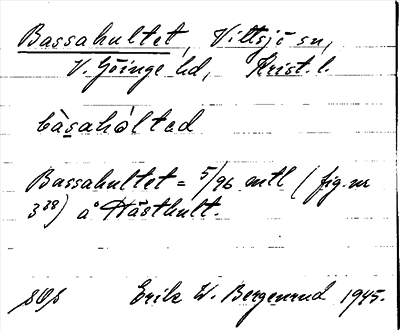 Bassahultet, Vittsjö sn,
V. Göinge hd, Krist. l.
bàsahòlted
Bassahultet = 5/96 mtl (fig. nr
3³⁸) å Hästhult.
Erik W. Bergenrud 1945.